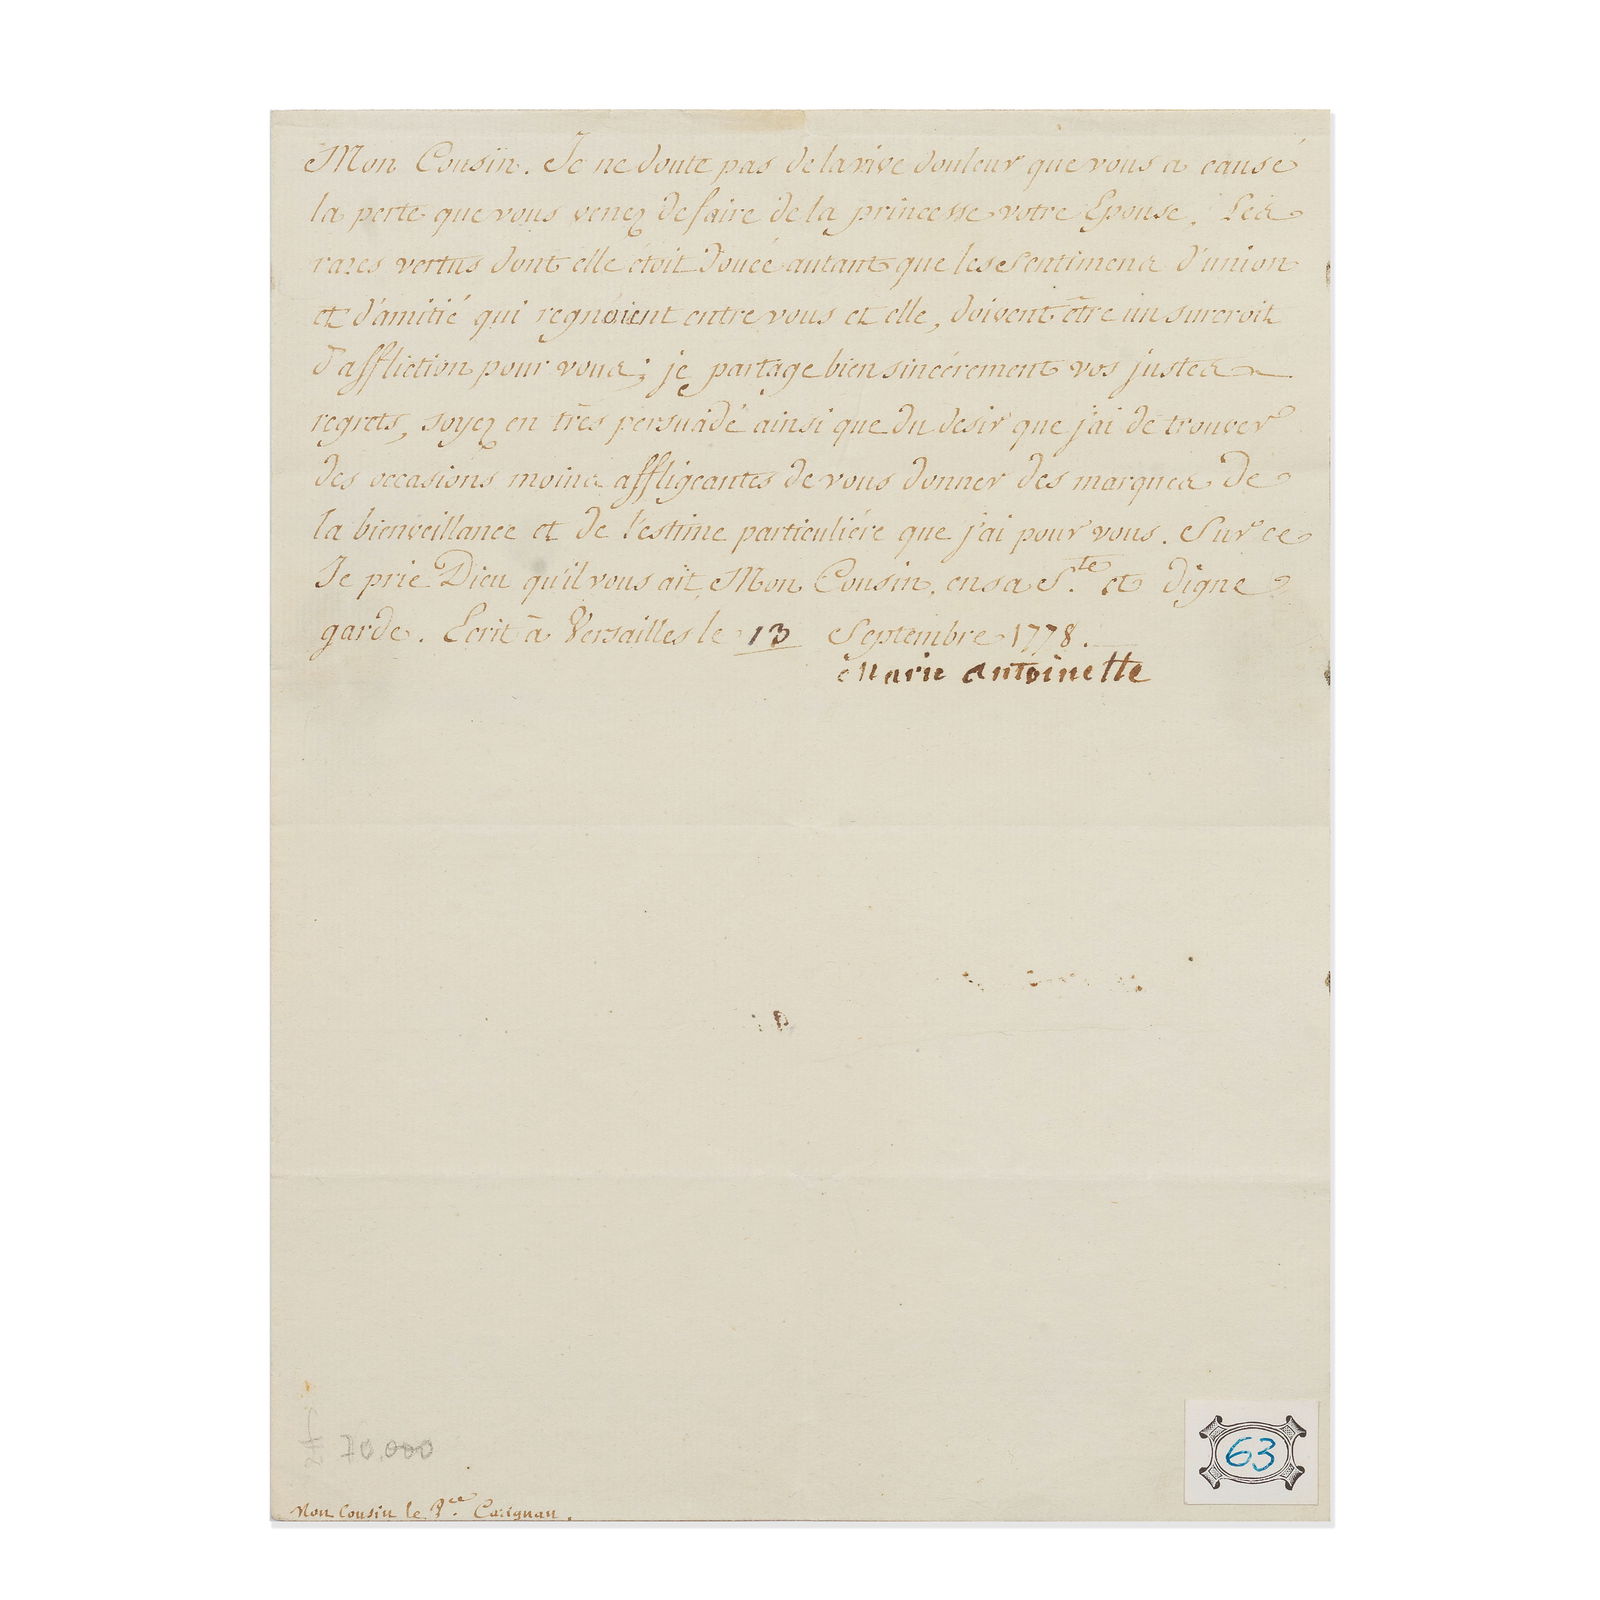 Mon Cousin. Je ne doute pas de la vive douleur que vous a causé
la perte que vous venez de faire de la princesse votre Epouse. Les
rares vertus dont elle étoit douée autant que les sentimens d'union
et d'amitié qui regnoient entre vous et elle, doivent être un surcroit
d'affliction pour vous; je partage bien sincérement vos justes
regrets, soyez en très persuadé ainsi que du desir que j'ai de trouver
des occasions moins affligeantes de vous donner des marques de
la bienveillance et de l'estime particuliére que j'ai pour vous. Sur ce
Je prie Dieu qu'il vous ait, Mon Cousin, en sa Ste. et digne
garde. Ecrit à Versailles le 13 Septembre 1778.
Marie Antoinette
70.000
63
Mon Cousin le Pce. Carignan.